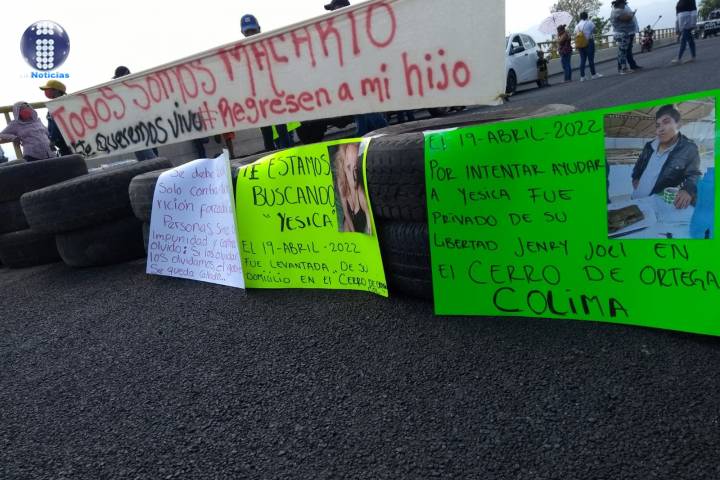 Noticias
Todos Somos MACARIO
te queremos vivo #Regresen a mi hijo
Se debe
Solo
Personas
impunidad y
olvido; si los
los olvidamos el
Se queda
TE ESTAMOS
BUSCANDO
"YESICA"
EL 19-ABRIL-2022
FUE LEVANTADA DE SU
DOMICILIO EN El CERRO DE
EL 19-ABRIL-2022
POR INTENTAR AYUDAR
A YESICA FUE
PRIVADO DE SU
LIBERTAD JENRY JOEL EN
El CERRO DE ORTEGA
COLIMA